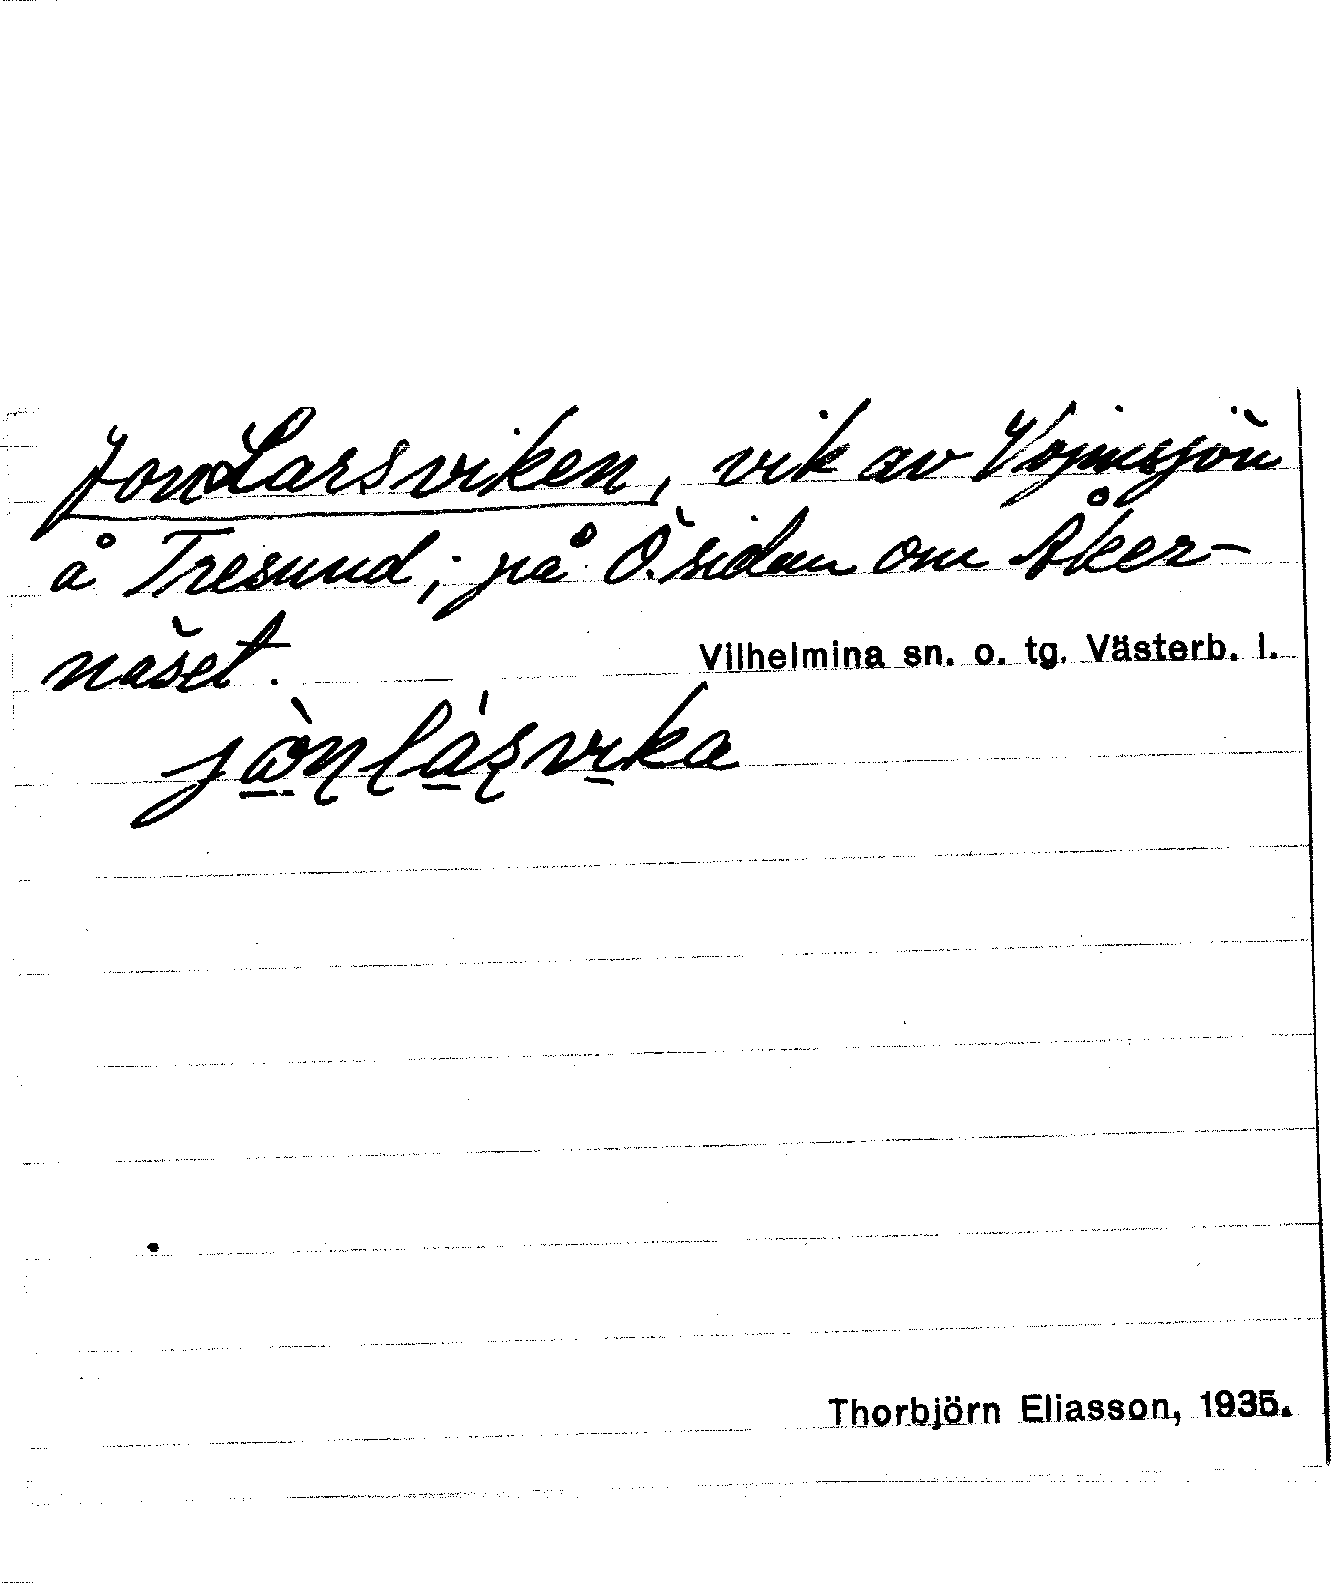 JonLarsviken, vik av Vojmsjön
å Tresund; på Ö.sidan om Åker-
näset.
Vilhelmina sn. o. tg. Västerb. l.
Thorbjörn Eliasson, 1935.